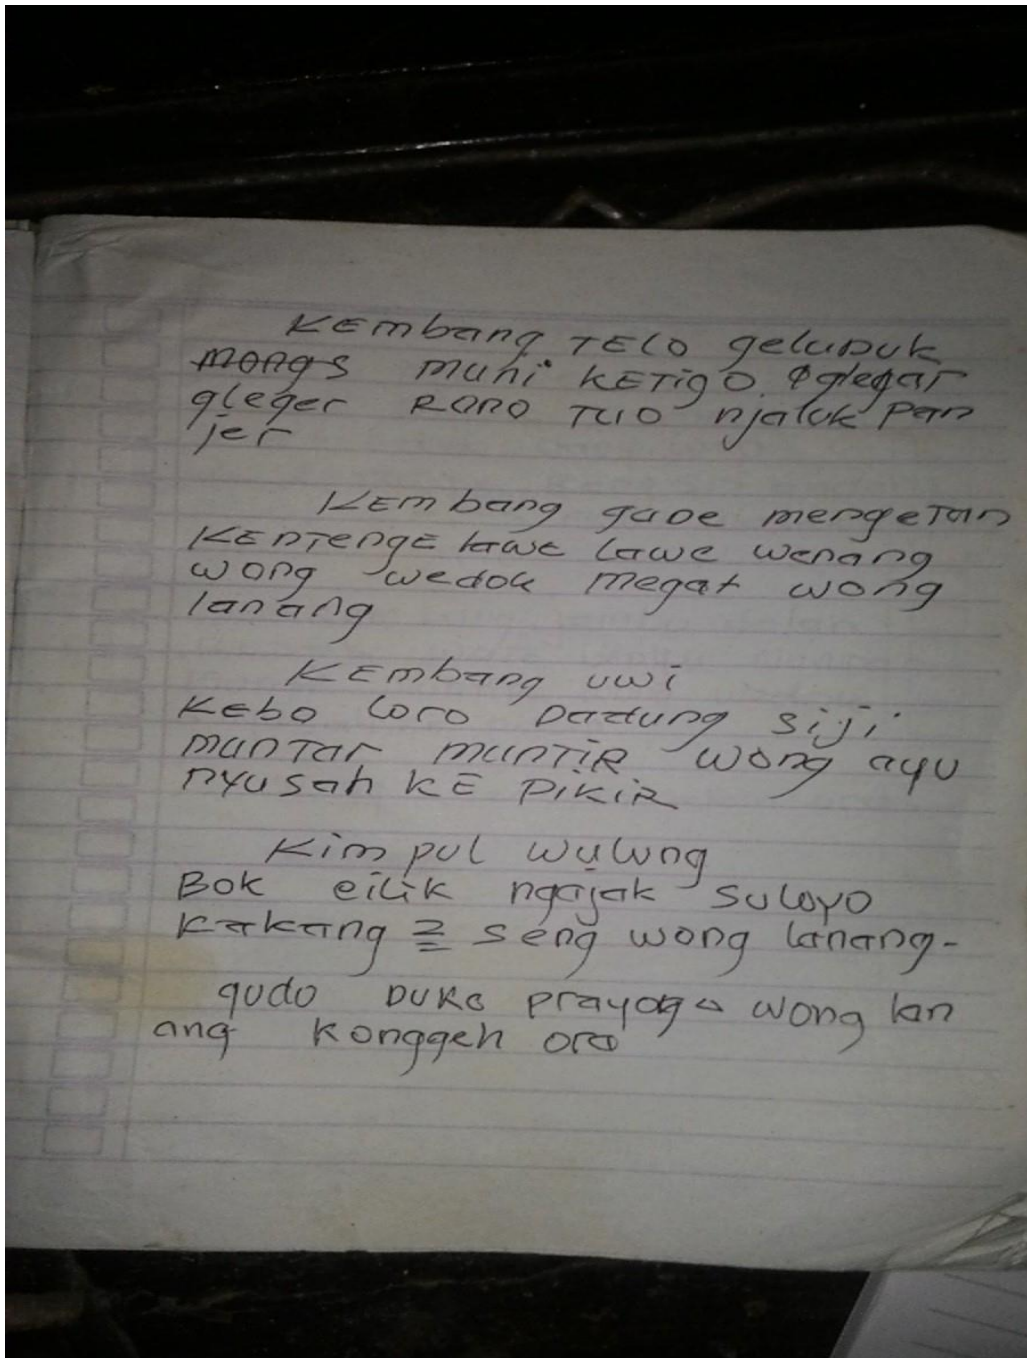 Kembang TELO gelupuk
mongs muni KETigO. glegar
gleger RONO TUO njaluk pan
jer
Kembang gade mengeTan
KENTENGE lawe lawe wenang
wong wedok megat wong
lanang
KEmbang uwi
Kebo loro Dadung siji
munTar munTiR wong ayu
nyusah KE PiKiR
Kimpul wulung
Bok cilik ngajak suloyo
Kakang 2 seng wong lanang-
gudo DUKO prayoga wong lan
ang Konggeh ora